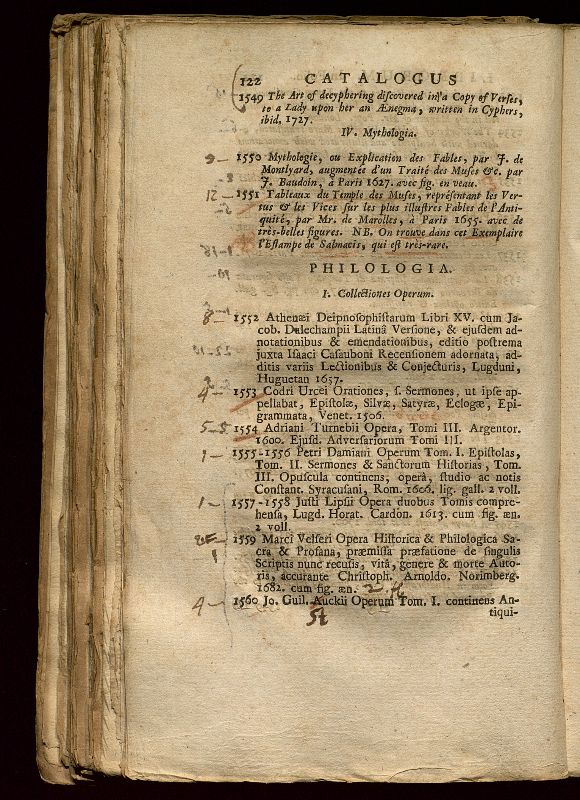 122 CATALOGUS
1549 The Art of decyphering discovered in a Copy of Verses,
to a Lady upon her an Ænegma, written in Cyphers,
ibid, 1727.
IV. Mythologia.
9- 1550 Mythologie, ou Explication des Fables, par J. de
Montlyard, augmentée d'un Traité des Muses &c. par
J. Baudoin, à Paris 1627. avec fig. en veau.
12- 1551 Tableaux du Temple des Muses, representant les Ver-
tus & les Vices sur les plus illustres Fables de l'Anti-
quité, par Mr. de Marolles, à Paris 1655. avec de
très-belles figures. NB. On trouve dans cet Exemplaire
l'Estampe de Salmacis, qui est très-rare.
PHILOLOGIA.
I. Collectiones Operum.
8- 1552 Athenæi Deipnosophistarum Libri XV. cum Ja-
cob. Dalechampii Latinâ Versione, & ejusdem ad-
notationibus & emendationibus, editio postrema
juxta Isaaci Casauboni Recensionem adornata, ad-
ditis variis Lectionibus & Conjecturis, Lugduni,
Huguetan 1657.
4- 1553 Codri Urcei Orationes, s. Sermones, ut ipse ap-
pellabat, Epistolæ, Silvæ, Satyræ, Eclogæ, Epi-
grammata, Venet. 1506.
5-5 1554 Adriani Turnebii Opera, Tomi III. Argentor.
1600. Ejusd. Adversariorum Tomi III.
1- 1555-1556 Petri Damiani Operum Tom. I. Epistolas,
Tom. II. Sermones & Sanctorum Historias, Tom.
III. Opuscula continens, operâ, studio ac notis
Constant. Syracusani, Rom. 1606. lig. gall. 2 voll.
1- 1557-1558 Justi Lipsii Opera duobus Tomis compre-
hensa, Lugd. Horat. Cardon. 1613. cum fig. æn.
2 voll.
1559 Marci Velseri Opera Historica & Philologica Sa-
cra & Profana, præmissa præfatione de singulis
Scriptis nunc recusis, vitâ, genere & morte Auto-
ris, accurante Christoph. Arnoldo. Norimberg.
1682. cum fig. æn.
4- 1560 Jo. Guil. Auckii Operum Tom. I. continens An-
St tiqui-